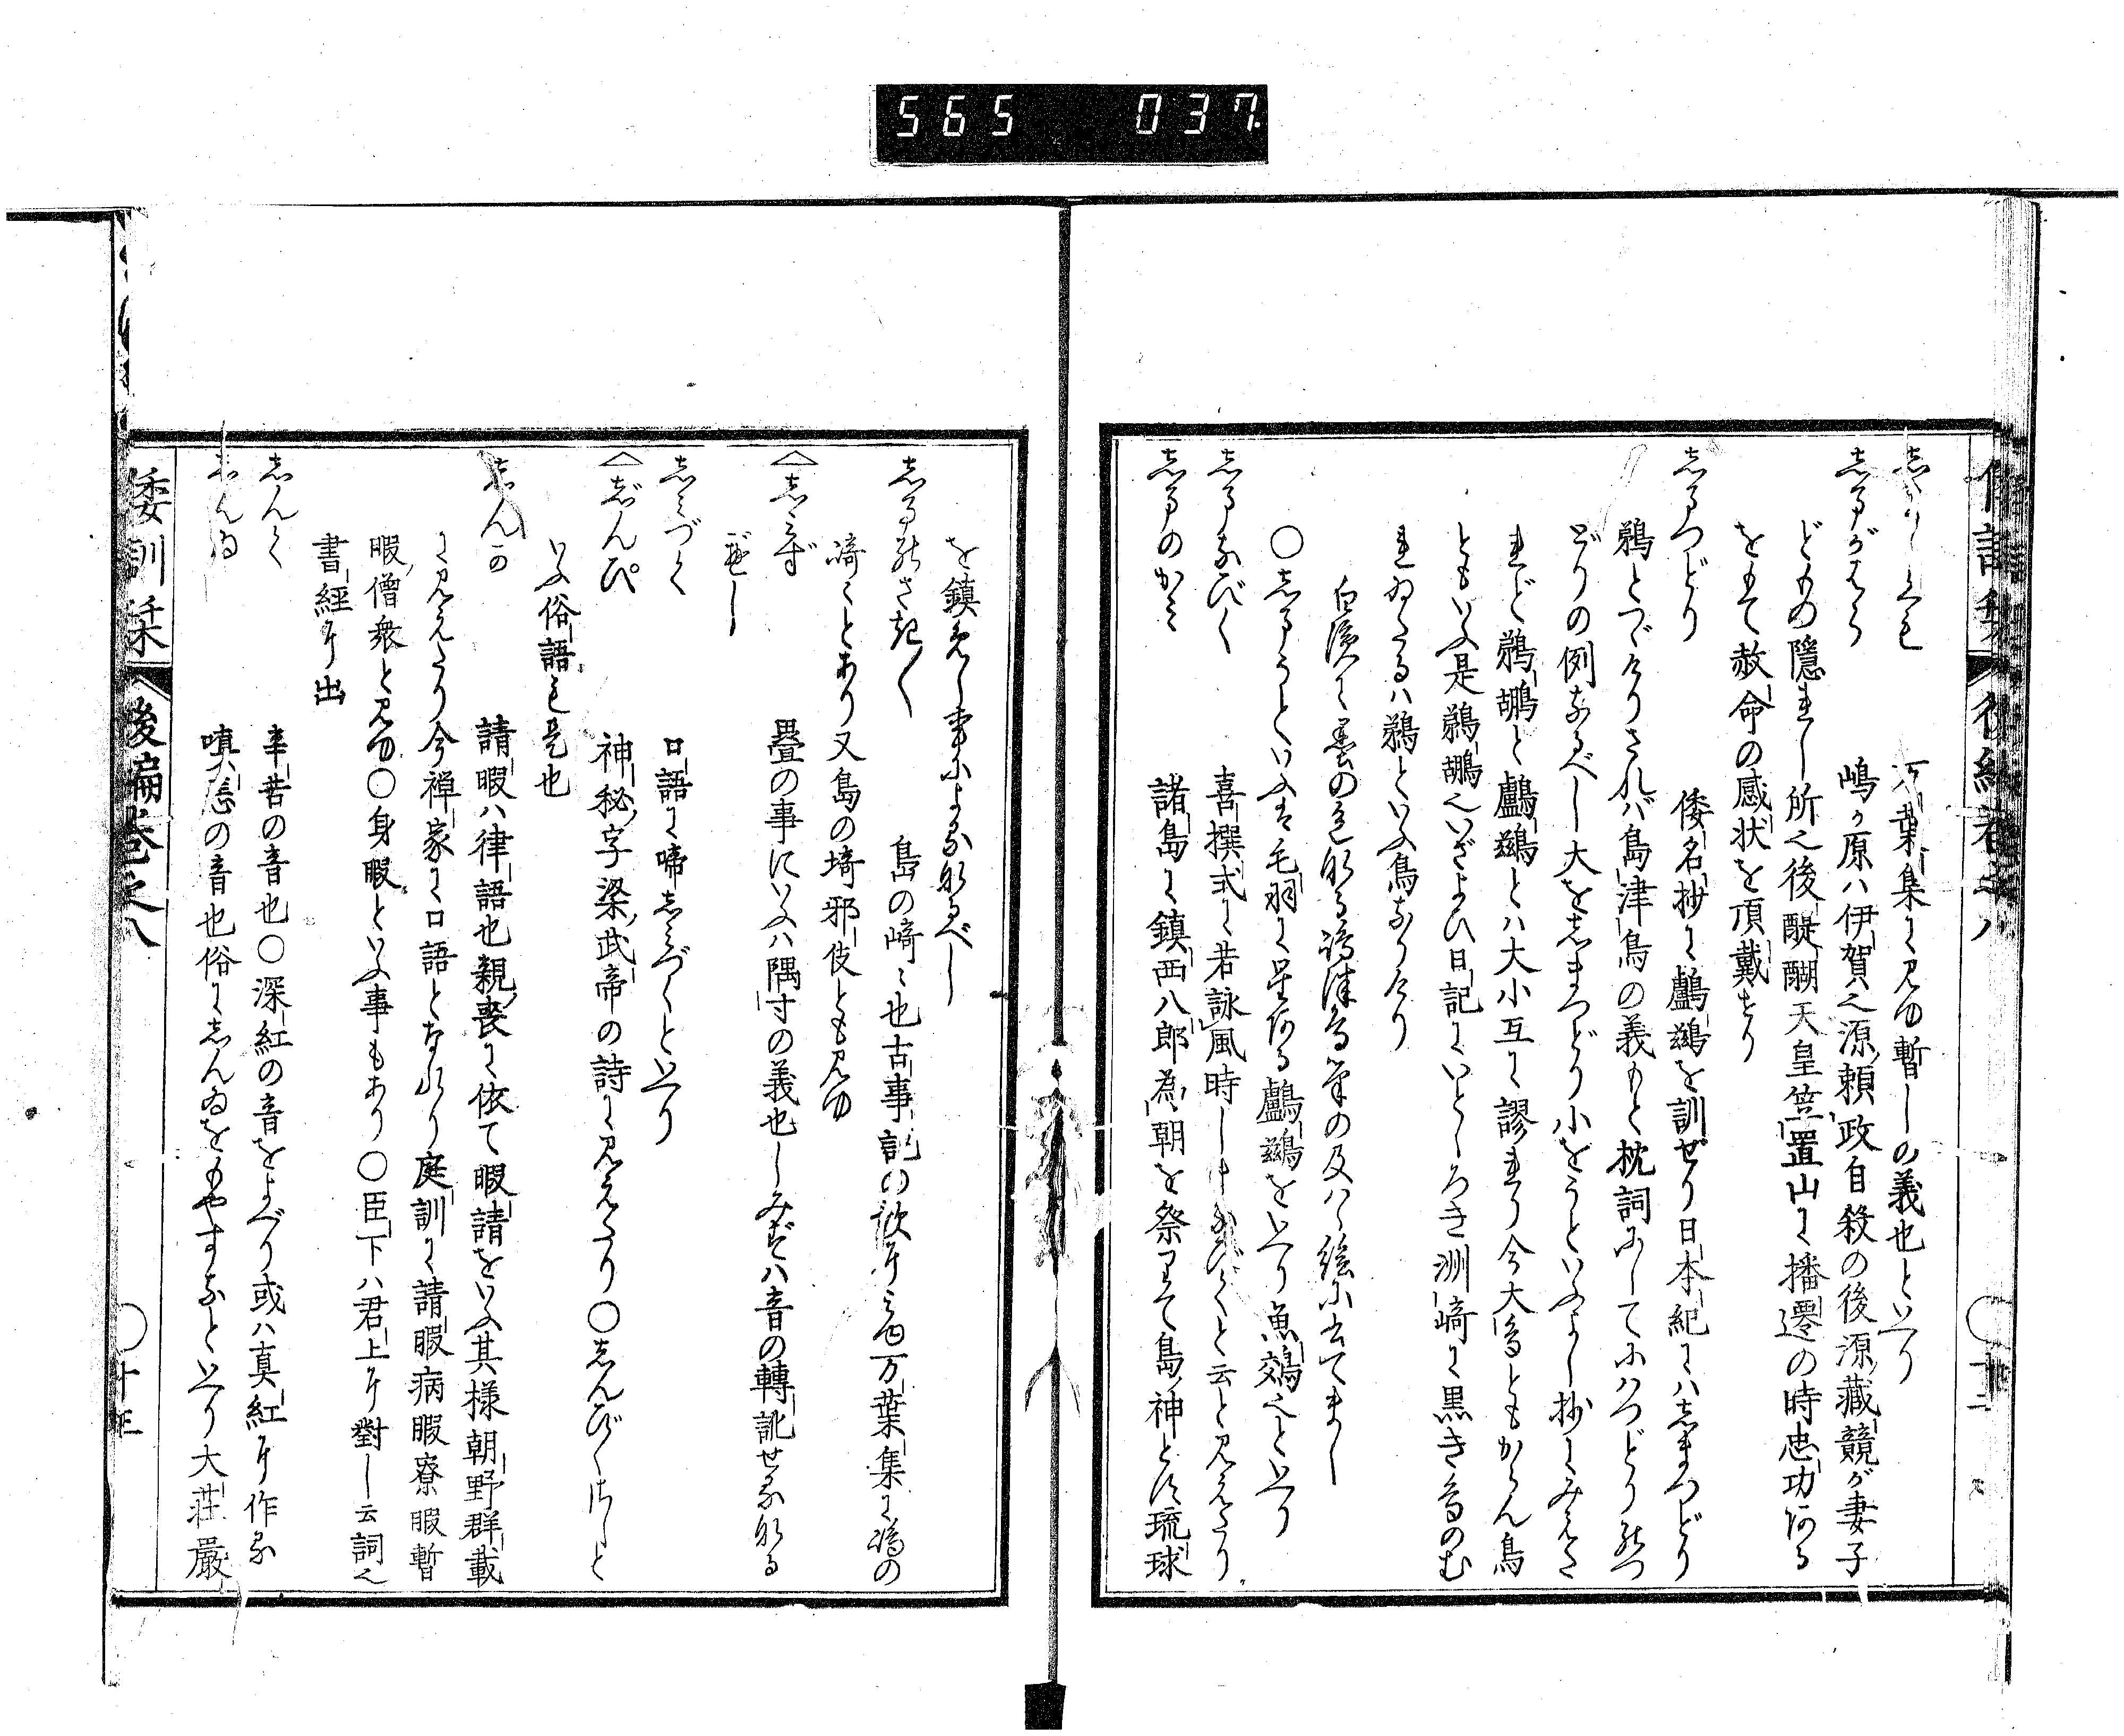 565 037
万葉集に見ゆ暫しの義也といへり
しまがはら 嶋か原ハ伊賀也源頼政自殺の後源蔵競が妻子
どもの隠れし所也後醍醐天皇笠置山に播遷の時忠功ある
をもて赦命の感状を頂戴せり
しまつどり 倭名抄に鸕鷀を訓ぜり日本紀にハしまつどり
鵜とつゞけりされバ島津鳥の義もと枕詞にしてにハつどり
どりの例なるべし大をしまつどり小をうといふよし抄にみえた
れど鵜鶘と鸕鷀とハ大小互に謬れり今大
ともいふ是鵜鶘也いざよひ日記にいとしろき洲崎に黒き鳥のむ
れゐたるハ鵜といふ鳥なりけり
白濱に墨の色なる嶋津鳥筆の及ハゞ絵にかきてまし
○しまうといふは毛羽に星ある鸕鷀をいへり魚鵁也といへり
しまなびく 喜撰式に若詠風時しまなびくと云と見えたり
しまのかミ 諸島に鎮西八郎為朝を祭りて島神とす琉球
を鎮めし事による成べし
島の崎〻也古事記の歌にみゆ万葉集に嶋の
崎〻とあり又島の埼邪伎とも見ゆ
畳の事にいふハ隅寸の義也しみぞハ音の轉訛せる成る
べし
しミづく 口語に啼しミづくといへり
じんぴ 神秘字梁武帝の詩に見えたり○しんびくさしと
いふ俗語も是也
しんか 請暇ハ律語也親喪に依て暇請をいふ其様朝野群載
に見えたり今禅家に口語となれり庭訓に請暇病暇寮暇暫
暇僧衆と見ゆ○身暇といふ事もあり○臣下ハ君上に對し云詞也
書経に出
しんく 辛苦の音也○深紅の音をよべり或ハ真紅に作る
しんゐ 嗔恚の音也俗にしんゐをもやすなといへり大荘嚴
倭訓栞 後編巻之八 ○十三